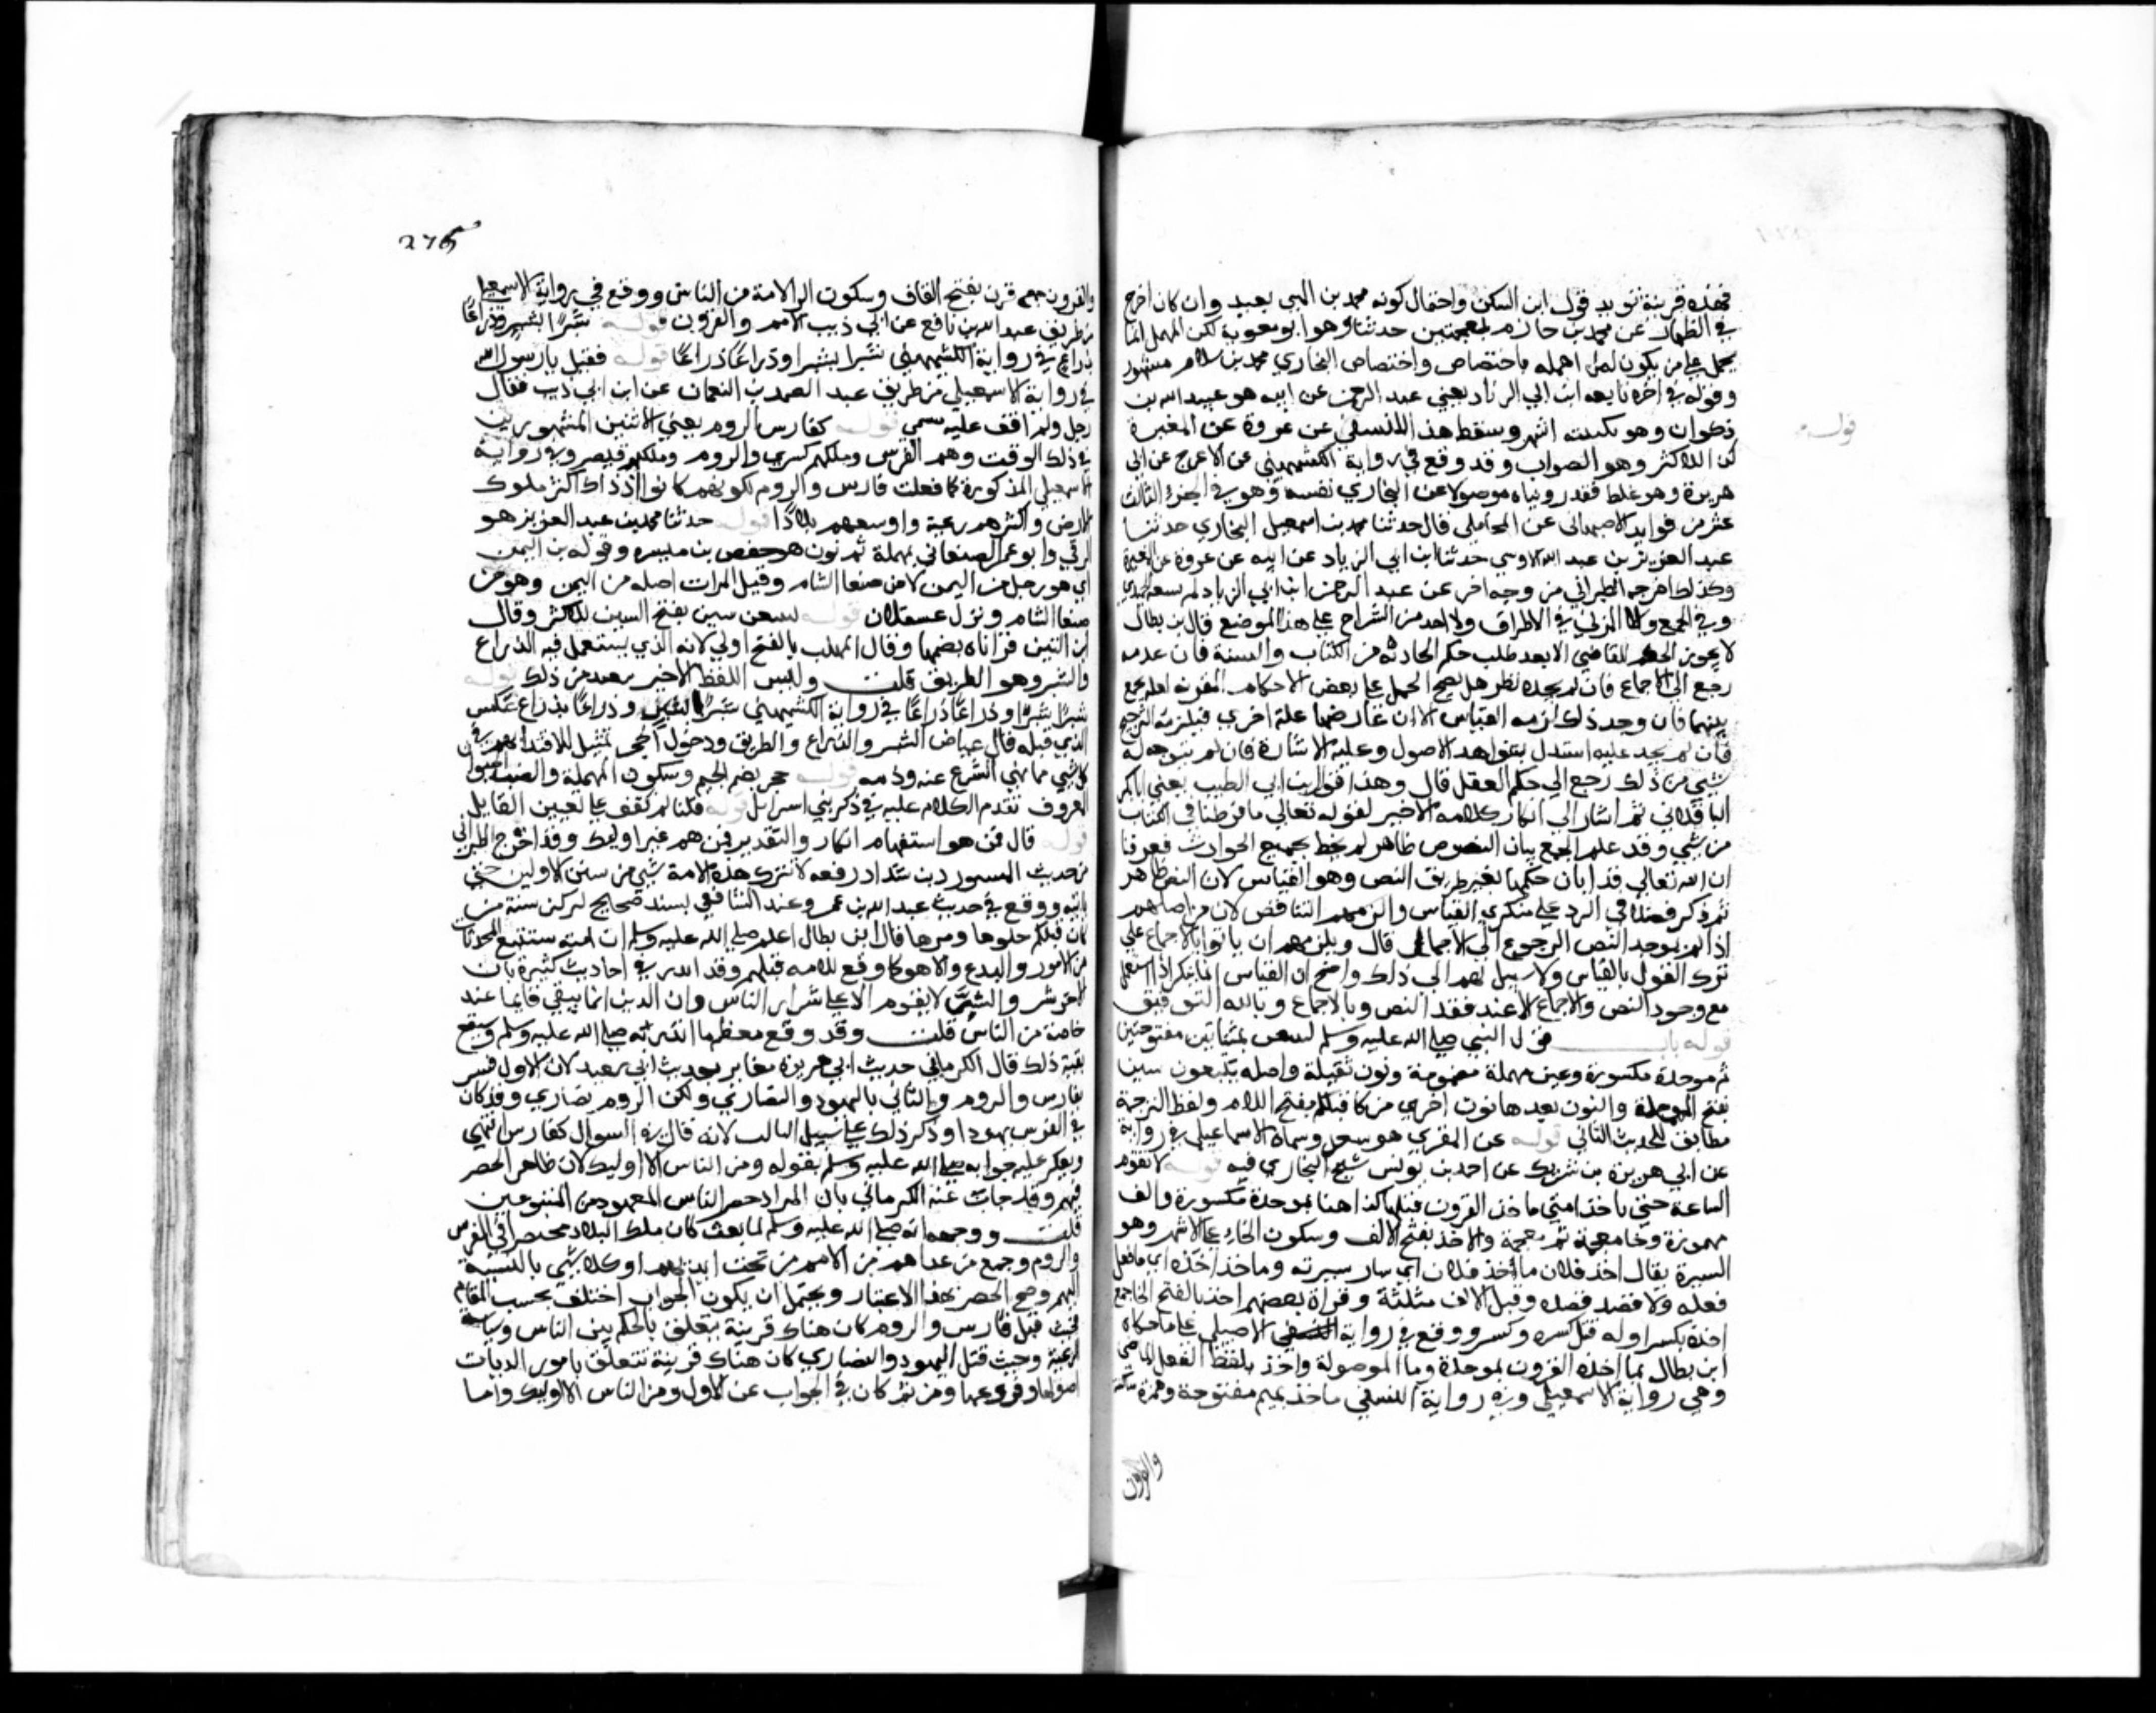 فهذه قرينة تويد قول ابن السكن واحتمال كونه محمد بن المثنى بعيد وان كان اخرج
في الطهارة عن محمد بن حازم بمعجمتين حدثنا وهو ابو معوية لكن المهمل انما
يحمل على من يكون لمن اهمله به اختصاص واختصاص البخاري بمحمد بن سلام مشهور
وقوله في اخره تابعه ابن ابي الزناد يعني عبد الرحمن عن ابيه هو عبد الله بن
ذكوان وهو بكنيته اشهر وسقط هذا للنسفي عن عروة عن المغيرة
كذا للاكثر وهو الصواب وقد وقع في رواية الكشميهني عن الاعرج عن ابي
هريرة وهو غلط فقد رويناه موصولا عن البخاري نفسه وهو في الجزء الثالث
عشر من فوايد الاصبهاني عن المحاملي قال حدثنا محمد بن اسمعيل البخاري حدثنا
عبد العزيز بن عبد الله الاوسي حدثنا ابن ابي الزناد عن ابيه عن عروة عن المغيرة
وكذلك اخرجه الطبراني من وجه اخر عن عبد الرحمن ابن ابي الزناد لم ينبه الحميدي
في الجمع ولا المزني في الاطراف ولا احد من الشراح على هذا الموضع قال بن بطال
لا يجوز الحكم للقاضي الا بعد طلب حكم الحادثة من الكتاب والسنة فان عدمه
رجع الى الاجماع فان لم يجده نظر هل يصح الحمل على بعض الاحكام المقررة لعله يجمع
بينهما فان وجد ذلك لزمه القياس الا ان عارضها علة اخرى فيلزمه الترجيح
فان لم يجد عليه استدل بشواهد الاصول وعليه الاشارة فان لم يتوجه له
شي من ذلك رجع الى حكم العقل قال وهذا قول ابن ابي الطيب يعني ابا بكر
الباقلاني ثم اشار الى انكار كلامه الاخير لقوله تعالى ما فرطنا في الكتاب
من شي وقد علم الجمع بان النصوص ظاهر لم يحط بجميع الحوادث فعرفنا
ان الله تعالي قد ابان حكمها بغير طريق النص وهو القياس لان النص ظاهر
ثم ذكر فصلا في الرد على منكري القياس والزمهم التناقض لان من اصلهم
اذا لم يوجد النص الرجوع الى الاجماع قال ويلزمهم ان ياتوا بالاجماع على
ترك القول بالقياس ولا سبيل لهم الى ذلك واضح ان القياس انما ينكر اذا استعمل
مع وجود النص والاجماع لا عند فقد النص وبالاجماع وبالله التوفيق
قوله باب قول النبي صلى الله عليه وسلم لتتبعن بمثناتين مفتوحتين
ثم موحدة مكسورة وعين مهملة مضمومة ونون ثقيلة واصله يتبعون سنن
بفتح المهملة والنون بعدها نون اخرى من كان قبلكم بفتح اللام ولفظ الترجمة
مطابق للحديث الثاني قوله عن المقبري هو سعيد وسماه الاسماعيلي في رواية
عن ابي هريرة بن شريك عن احمد بن يونس شيخ البخاري فيه قوله لا تقوم
الساعة حتى ياخذ امتي ماخذ القرون قبلها كذا هنا بموحدة مكسورة والف
مهموزة وخا معجمة ثم معجمة والاخذ بفتح الالف وسكون الخاء على الاشهر وهو
السيرة يقال اخذ فلان ماخذ فلان اي سار سيرته وما اخذ اخذه اي ما فعل
فعله ولا قصد قصده وقيل الالف مثلثة وقراه بعضهم اخذ بالفتح الخا جمع
اخذة بكسر اوله قبل كسره وكسر ووقع في رواية الاصيلي على ما حكاه
ابن بطال بما اخذ القرون بموحدة وما الموصولة واخذ بلفظ الفعل الماضي
وهي رواية الاسمعيلي وفي رواية النسفي ماخذ بميم مفتوحة وهمزة ساكنة
والقرون
قوله
275
والقرون جمع قرن بفتح القاف وسكون الرا الامة من الناس ووقع في رواية الاسمعيلي
من طريق عبد الله بن نافع عن ابي ذيب الامم والقرون قوله شبرا بشبر وذراعا
بذراع في رواية الكشميهني شبرا بشبرا وذراعا ذراعا قوله فقيل يارسول الله
في رواية الاسمعيلي من طريق عبد الصمد بن النعمان عن ابن ابي ذيب فقال
رجل ولم اقف عليه مسمى قوله كفارس الروم يعني الاثنين المشهورين
في ذلك الوقت وهم الفرس وملكهم كسرى والروم وملكهم قيصر وفي رواية
الاسمعيلي المذكورة كما فعلت فارس والروم لكونهم كانوا اذ ذاك اكثر ملوك
الارض واكثرهم رعية واوسعهم بلادا قوله حدثنا محمد بن عبد العزيز هو
الرملي وابو عمر الصنعاني بمهملة ثم نون هو حفص بن ميسره وقوله من اليمن
اي هو رجل من اليمن لا من صنعا الشام وقيل المراد اصله من اليمن وهو من
صنعا الشام ونزل عسقلان قوله لتتبعن سنن بفتح السين للاكثر وقال
ابن التين قراناه بضمها وقال المهلب بالفتح اولى لانه الذي يستعمل فيه الذراع
والشبر وهو الطريق قلت وليس اللفظ الاخير ببعيد من ذلك قوله
شبرا شبرا وذراعا ذراعا في رواية الكشميهني شبرا بشبر وذراعا بذراع عكس
الذي قبله قال عياض الشبر والذراع والطريق ودخول الجحر تمثيل للاقتدا بهم في
كل شي مما نهى الشرع عنه وذمه قوله جحر بضم الجيم وسكون المهملة والضب الحيوان
المعروف تقدم الكلام عليه في ذكر بني اسرايل قوله قلنا لم نقف على تعيين القايل
قوله قال فمن هو استفهام انكار والتقدير فمن هم غير اوليك وقد اخرج الطبراني
من حديث المستورد بن شداد رفعه لا تترك هذه الامة شي من سنن الاولين حتى
تاتيه ووقع في حديث عبد الله بن عمر وعند الشافعي بسند صحيح لتركبن سنة من
كان قبلكم حلوها ومرها قال ابن بطال اعلم صلى الله عليه وسلم ان امته ستتبع المحدثات
من الامور والبدع والاهوا كما وقع للامم قبلهم وقد انذر في احاديث كثيرة بان
الاخر شر والشر لا يقوم الا على شرار الناس وان الدين انما يبقى قايما عند
خاصة من الناس قلت وقد وقع معظم ما انذر به صلى الله عليه وسلم وسيقع
بقية ذلك قال الكرماني حديث ابي هريرة مغاير لحديث ابي سعيد لان الاول فسر
بفارس والروم والثاني باليهود والنصارى ولكن الروم نصارى وقد كان
في الفرس يهود او ذكر ذلك على سبيل المثال لانه قال في السوال كفارس انتهى
ويعكر عليه جوابه صلى الله عليه وسلم بقوله ومن الناس الا اوليك لان ظاهره الحصر
فيهم وقد اجاب عنه الكرماني بان المراد حصر الناس المعهود من المتبوعين
قلت ووجهه انه صلى الله عليه وسلم لما بعث كان ملك البلاد منحصرا في الفرس
والروم وجميع من عداهم من الامم من تحت ايديهم او كلا شي بالنسبة
اليهم وصح الحصر بهذا الاعتبار ويحتمل ان يكون الجواب اختلف بحسب المقام
فحيث قيل فارس والروم كان هناك قرينة تتعلق بالحكم بين الناس وسياسة
الرعية وحيث قيل اليهود والنصارى كان هناك قرينة تتعلق بامور الديانات
اصولها وفروعها ومن ثم كان في الجواب عن الاول ومن الناس الا اوليك واما